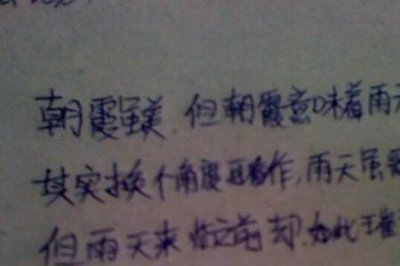 朝霞虽美,但朝霞意味着雨天
其实换个角度 作,雨天虽
但雨天来临之前却如此璀